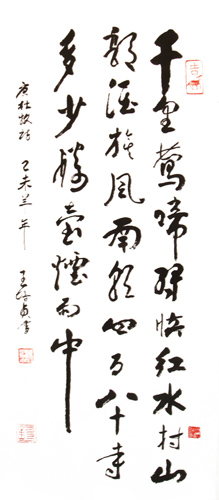 千里莺啼绿映红水村山
郭酒旗风南朝四百八十寺
多少楼臺煙雨中
唐杜牧诗 乙未 年 王 贞书